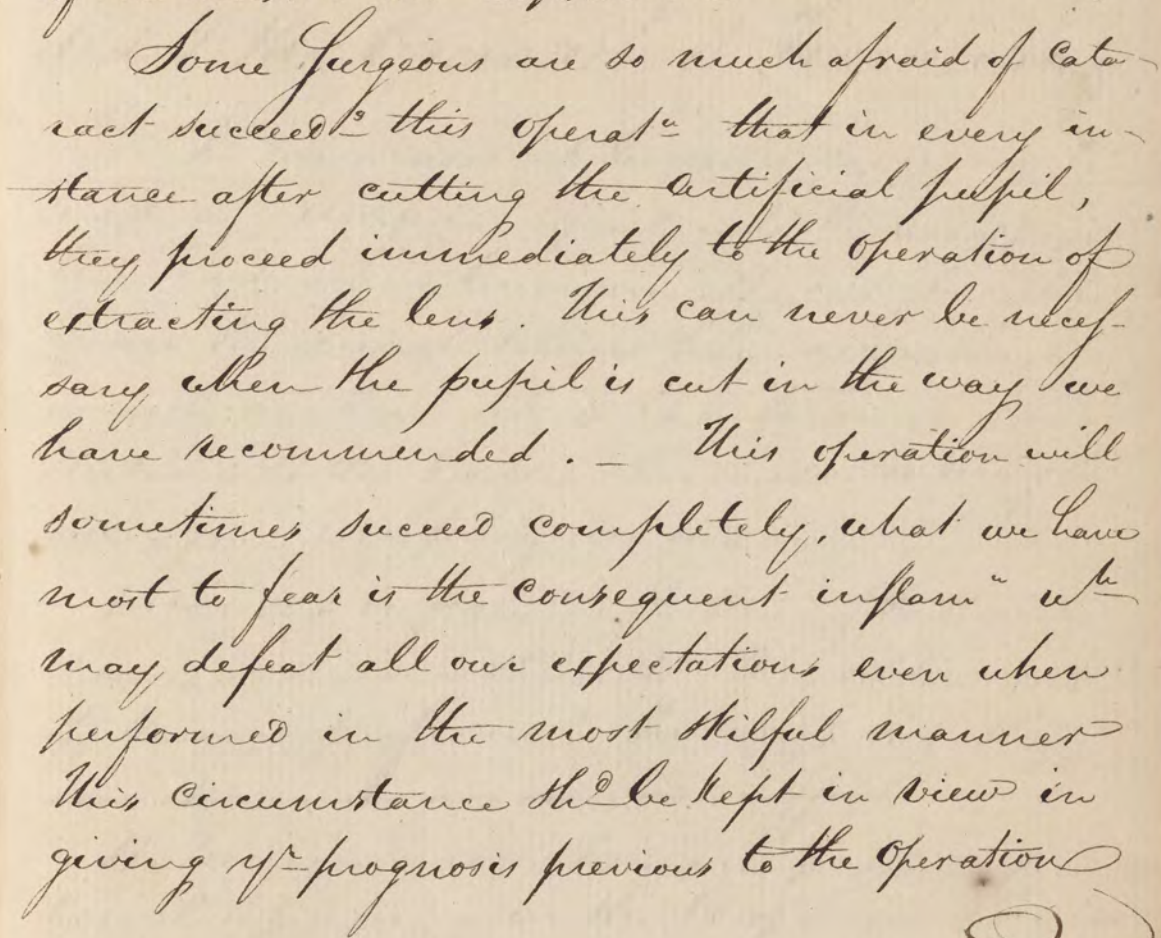 Some Surgeons are so much afraid of Cata-
ract succeedg this operatn that in every in-
stance after cutting the Artificial pupil,
they proceed immediately to the Operation of
extracting the lens. This can never be neces-
sary when the pupil is cut in the way we
have recommended. _ This operation will
sometimes succeed completely, what we have
most to fear is the consequent inflamn wh
may defeat all our expectations even when
performed in the most skilful manner
This circumstance shd be kept in view in
giving yr prognosis previous to the Operation